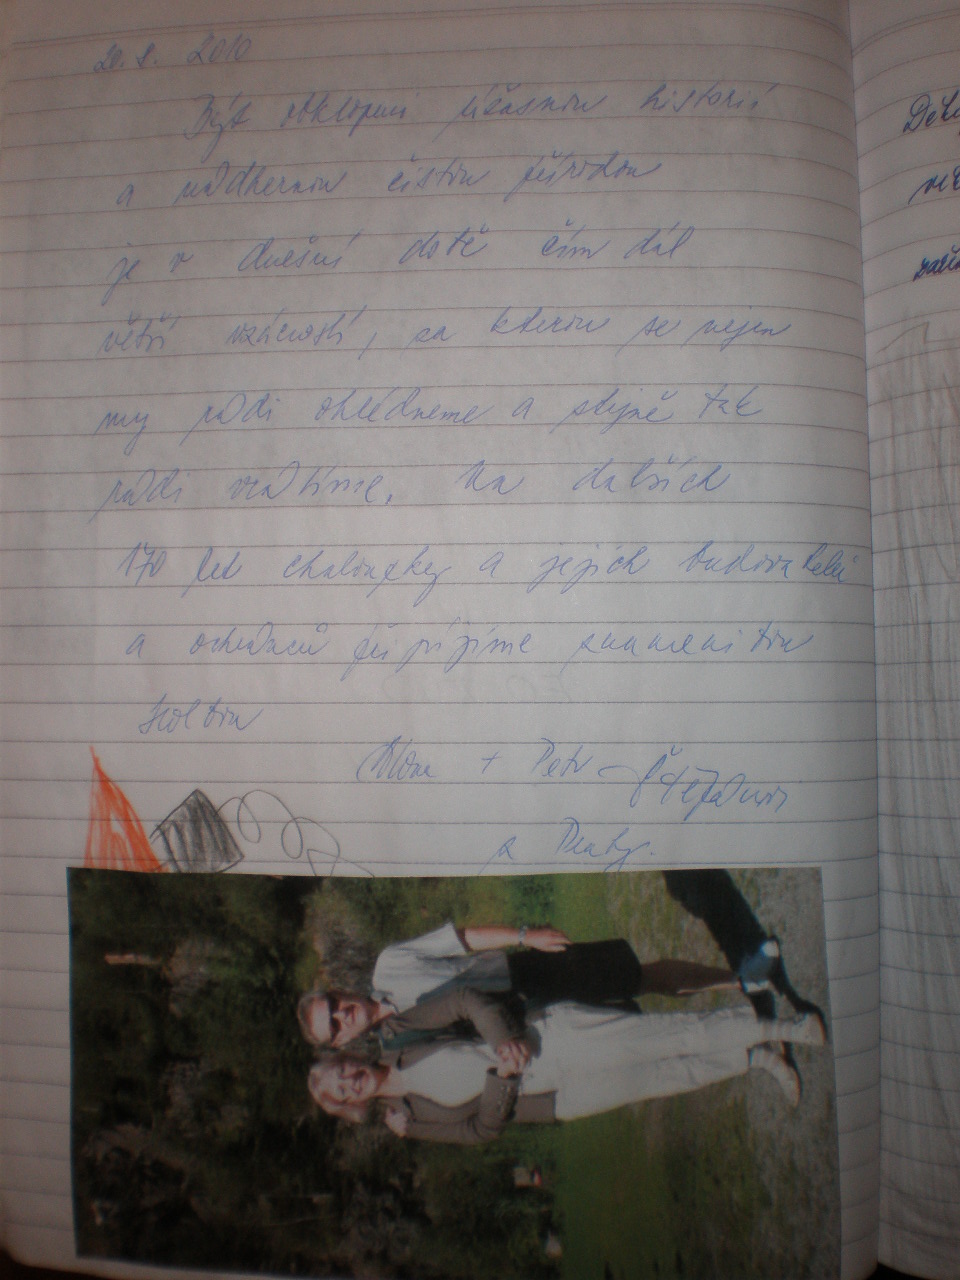 20. 8. 2010
Být obklopeni úžasnou historií
a nádhernou čistou přírodou
je v dnešní době čím dál
větší vzácností, za kterou se nejen
my rádi ohlédneme a stejně tak
rádi vrátíme. Na dalších
170 let chaloupky a jejich budovatelů
a ochránců připíjíme znamenitou
Holbou
+ Petr Štěpánovi
z Prahy.